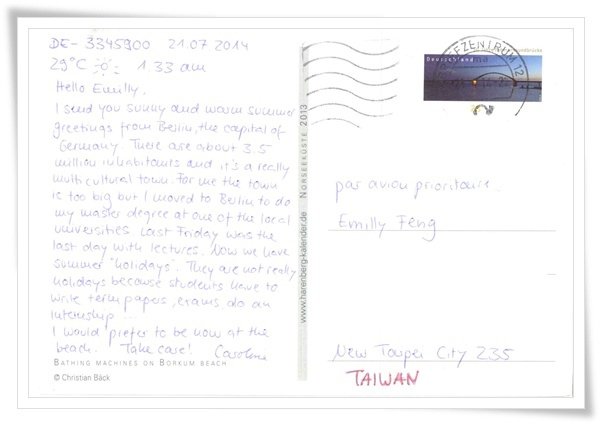 DE-3345900 21.07.2014
29°C 1 33 am
Hello Emilly,
I send you sunny and warm summer
greetings from Berlin, the capital of
Germany. There are about 3.5
million inhabitants and it's a really
multicultural town. For me the town
is too big but I moved to Berlin to do
my master degree at one of the local
universities. Last Friday was the
last day with lectures. Now we have
summer "holidays". They are not really
holidays because students have to
write term papers, exams, do an
internship ...
I would prefer to be now at the
beach. Take care! Caroline
BATHING MACHINES ON BORKUM BEACH
© Christian Bäck
www.harenberg-kalender.de NORSEEKÜSTE 2013
Deutschland
BRIEFZENTRUM 12
par avion prioritaire
Emilly Feng
New Taipei City 235
TAIWAN